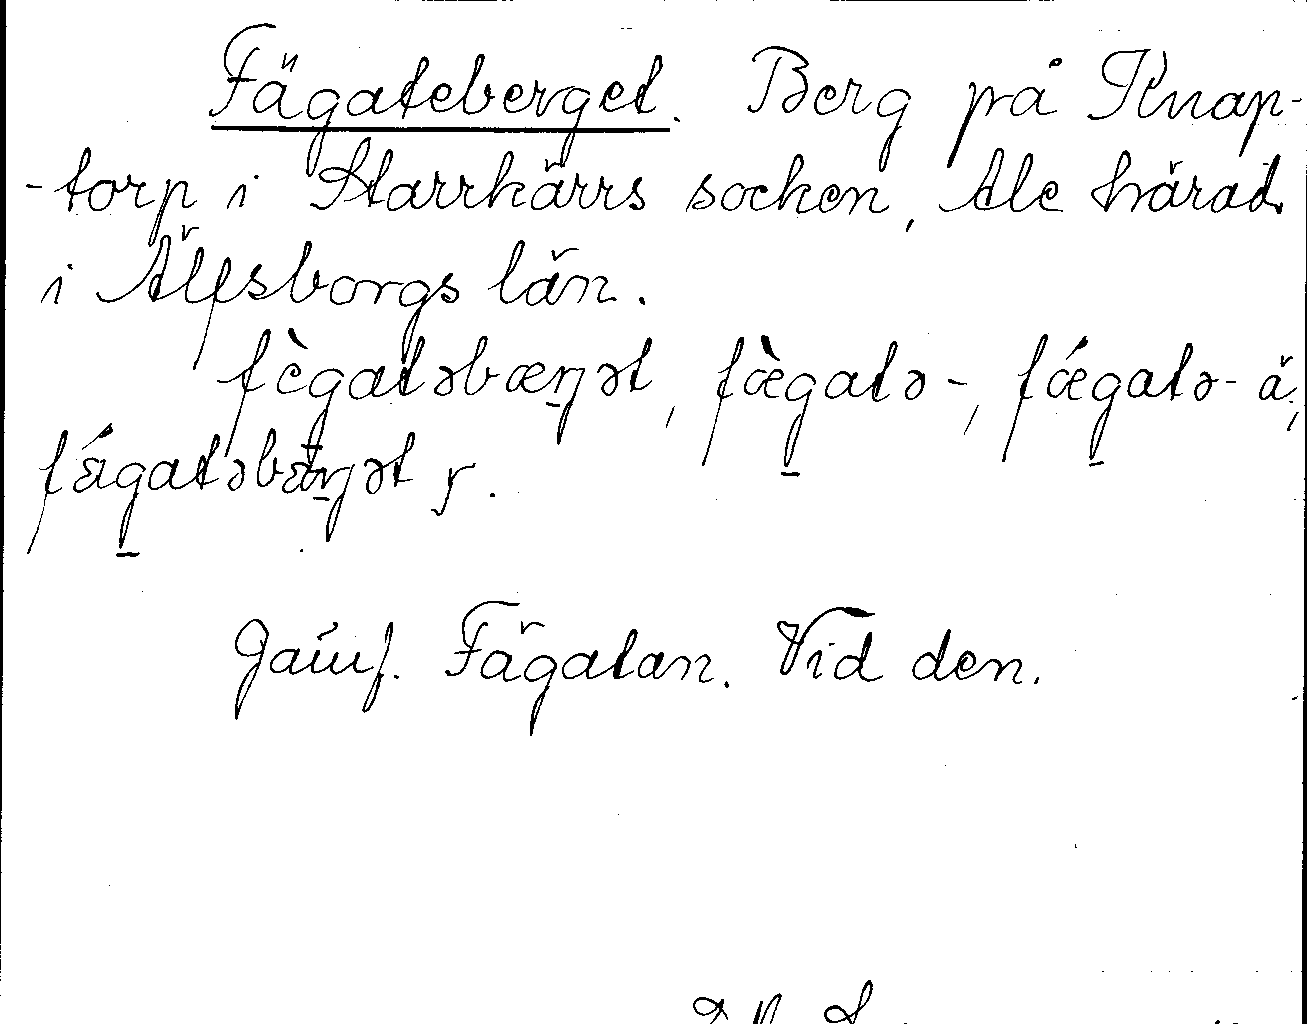 Fägateberget. Berg på Knap-
-torp i Starrkärrs socken, Ale härad
i Älfsborgs län.
fègatəbæŋət, fæ̀gatə-, fǽgatə- ä,
fǽgatəbæŋət ɼ.
Jämf. Fägatan. Vid den.